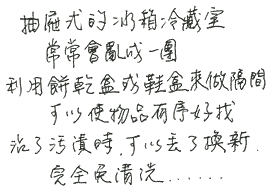 抽屜式的冰箱冷藏室
常常會亂成一團
利用餅乾盒或鞋盒來做隔間
可以使物品有序好找
沾了污漬時,可以丟了換新.
完全免清洗......